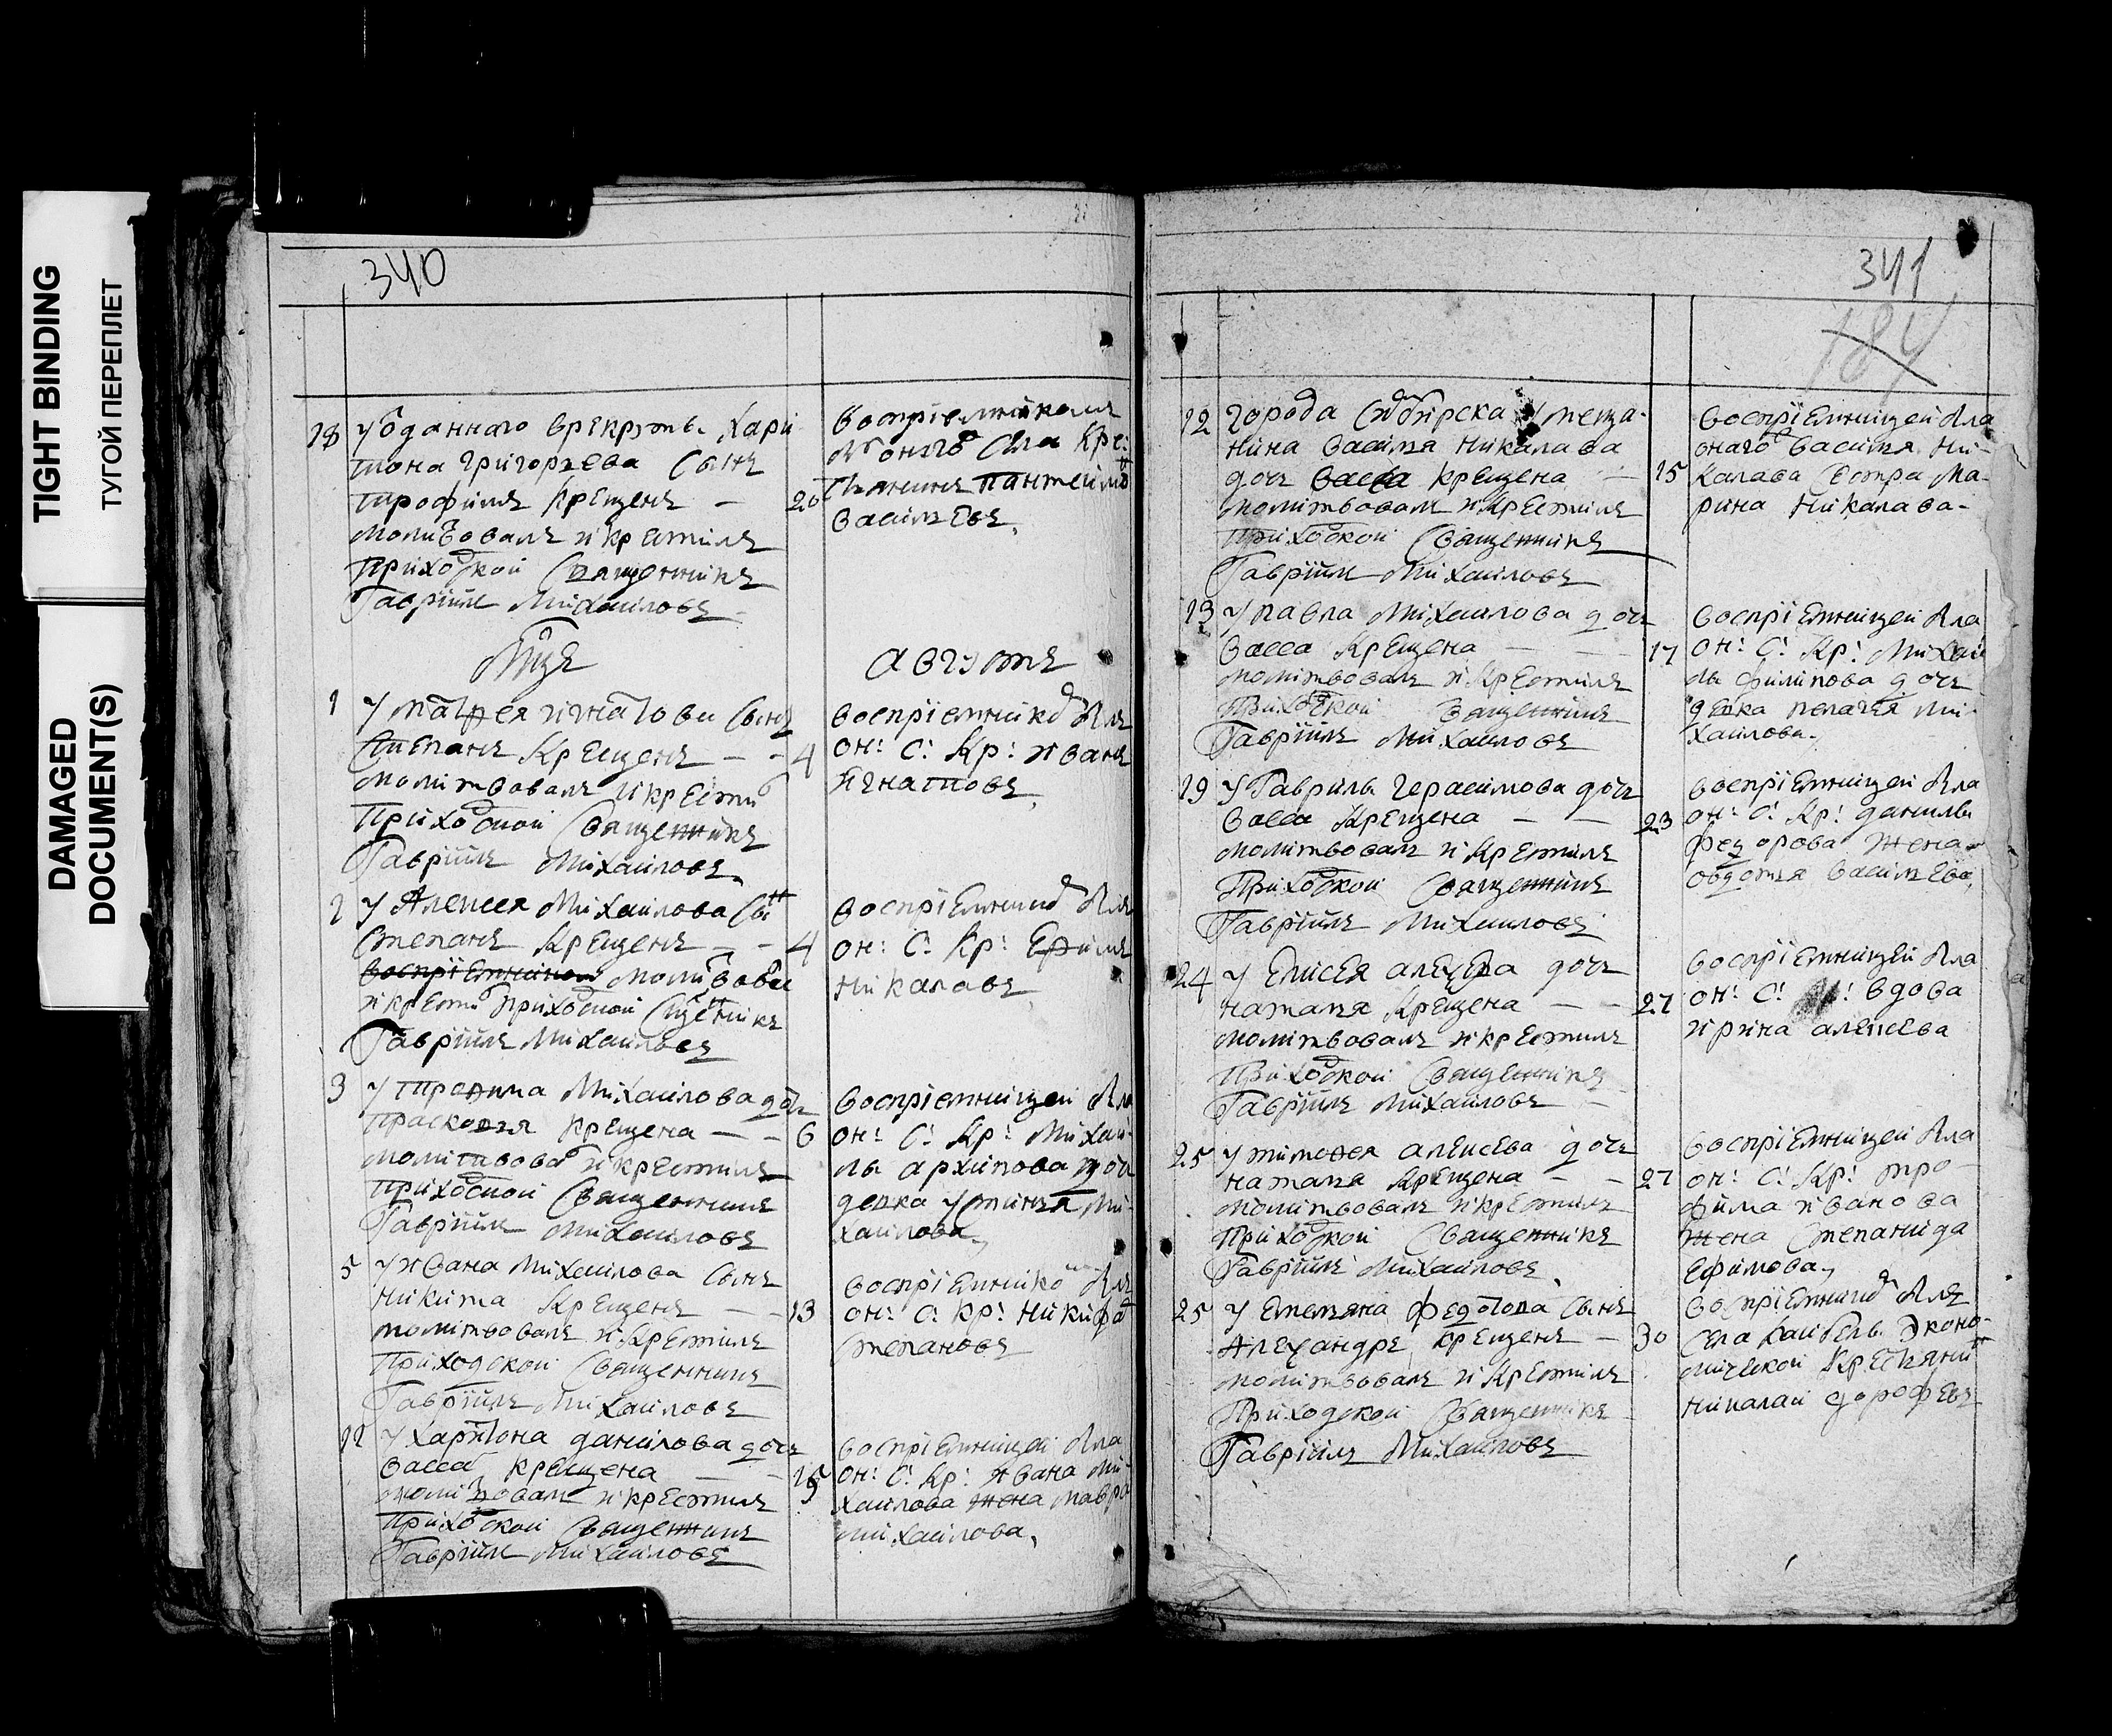 TIGHT BINDING
ТУГОЙ ПЕРЕПЛЕТ
DAMAGED
DOCUMENT(S)
340
18 у отданнаго врекруты Хари
тона григорьева сынъ
трофимъ крещенъ – 20
молитвовалъ и крестилъ
приходской священникъ
Гаврiилъ Михаиловъ
воспрiемникомъ
былъ оного села кре:
стьянинъ пантелимо
васильевъ
Мцъ августъ
1 у матфея игнатова сынъ
степанъ крещенъ – – 4
молитвовалъ и крести
приходской священникъ
Гаврiилъ Михаиловъ
воспрiемнико былъ
он: с: кр: иванъ
игнатовъ
2 у Алексея Михаилова сынъ
степанъ крещенъ – – 4
воспрiемником молитвова
и крести приходской сщенникъ
Гаврiилъ Михаиловъ
воспрiемнико былъ
он: с: кр: ефимъ
никалавъ
3 у трофима Михаилова дочь
прасковья крещена – – 6
молитвова и крестилъ
приходской священникъ
Гаврiилъ Михаиловъ
воспрiемницей была
он: с: кр: михаи
лы архипова дочь
девка устинья ми
хаилова
5 у ивана Михаилова сынъ
никита крещенъ – – 13
молитвовалъ и крестилъ
приходской священникъ
Гаврiилъ Михаиловъ
воспрiемнико былъ
он: с: кр: никифо
степановъ
12 у харитона данилова дочь
васса крещена – – 15
молитвовалъ и крестилъ
приходской священникъ
Гаврiилъ Михаиловъ
воспрiемницей была
он: с: кр: ивана ми
хаилова жена мавра
михаилова
341
184
12 города симбирска у меща
нина василья никалава
дочь васса крещена – 15
молитвовалъ и крестилъ
приходской священникъ
Гаврiилъ Михаиловъ
воспрiемницей была
оного василья ни
калава сестра ма
рина никалава
13 у павла михаилова дочь
васса крещена – – 17
молитвовалъ и крестилъ
приходской священникъ
Гаврiилъ Михаиловъ
воспрiемницей была
он: с: кр: михаи
лы филипова дочь
девка пелагея ми
хаилова
19 у Гаврилы герасимова дочь
васса крещена – – 23
молитвовалъ и крестилъ
приходской священникъ
Гаврiилъ Михаиловъ
воспрiемницей была
он: с: кр: данилы
федорова жена
овдотья васильева
24 у елисея алексеева дочь
наталья крещена – – 27
молитвовалъ и крестилъ
приходской священникъ
Гаврiилъ Михаиловъ
воспрiемницей была
он: с: кр: вдова
ирина алексеева
25 у тимофея алексева дочь
наталья крещена – – 27
молитвовалъ и крестилъ
приходской священникъ
Гаврiилъ Михаиловъ
воспрiемницей была
он: с: кр: тро
фима иванова
жена степанида
ефимова
25 у емельяна федотова сынъ
Александръ крещенъ – 30
молитвовалъ и крестилъ
приходской священникъ
Гаврiилъ Михаиловъ
воспрiемнико былъ
села каибелъ эконо
мической крестьянин
николай дорофевъ